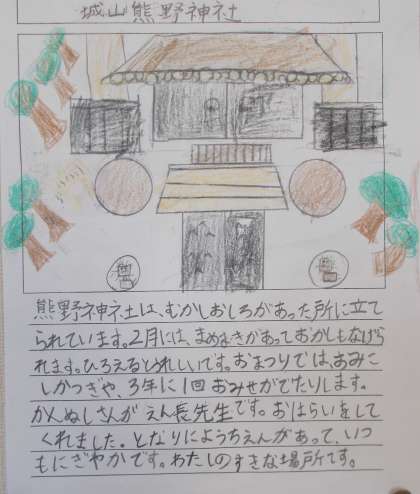 城山熊野神社
熊野神社は、むかしおしろがあった所に立て
られています。2月には、まめまきがあっておかしもなげら
れます。ひろえるとうれしいです。おまつりでは、おみこ
しかつぎや、3年に1回おみせがでたりします。
かんぬしさんがえん長先生です。おはらいをして
くれました。となりにようちえんがあって、いつ
もにぎやかです。わたしのすきな場所です。